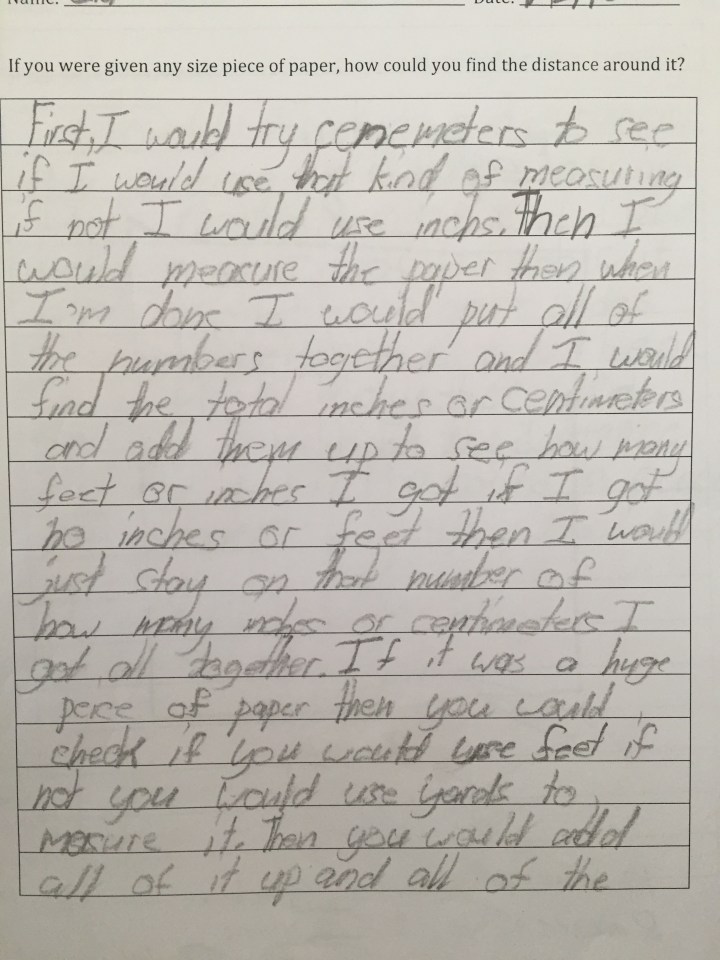 Name: Date:
If you were given any size piece of paper, how could you find the distance around it?
First, I would try cememeters to see
if I would use that kind of measuring
if not I would use inchs. Then I
would measure the paper then when
I'm done I would put all of
the numbers together and I would
find the total inches or centimeters
and add them up to see how many
feet or inches I got if I got
no inches or feet then I would
just stay on that number of
how many inches or centimeters I
got all together. If it was a huge
perce of paper then you would
check if you would use feet if
not you would use yards to
mesure it. Then you would add
all of it up and all of the